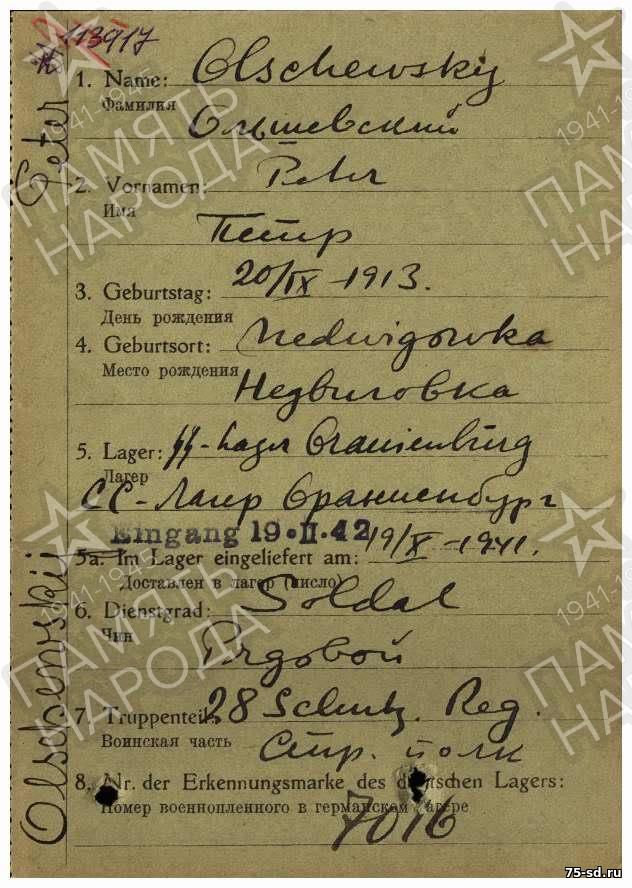 113917
1. Name: Olschewskij
Фамилия
Ольшевский
2. Vornamen: Petr
Имя
Петр
3. Geburtstag: 20/IX-1913.
День рождения
4. Geburtsort: Nedwigowka
Место рождения
Недвиговка
5. Lager: SS-Lager Oranienburg
Лагер
СС-Лагер Ораниенбург
Eingang 19.II.42
5a. Im Lager eingeliefert am: 19/X-1941.
Доставлен в лагер (число)
6. Dienstgrad: Soldat
Чин
Рядовой
7. Truppenteil: 28 Schutz. Reg.
Воинская часть Стр. полк
8. Nr. der Erkennungsmarke des deutschen Lagers:
Номер военнопленного в германском лагере
7016
Olschewskij Peter
ПАМЯТЬ
НАРОДА
1941-1945
75-sd.ru